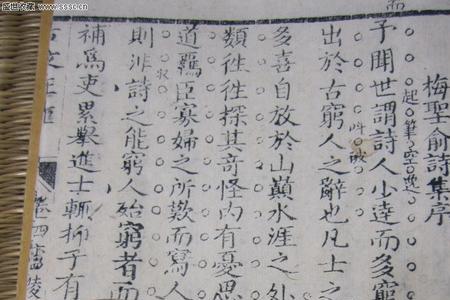 盛世收藏 www.sssc.cn
梅聖俞詩集序
起筆空逸
予聞世謂詩人少達而多窮
叫破
出於古窮人之辭也凡士之
多喜自放於山巔水涯之外
類徃徃探其奇怪内有憂思
道羈臣寡婦之所歎而寫人
則非詩之能窮人殆窮者而
補爲吏累舉進士輒抑于有
卷四廬陵